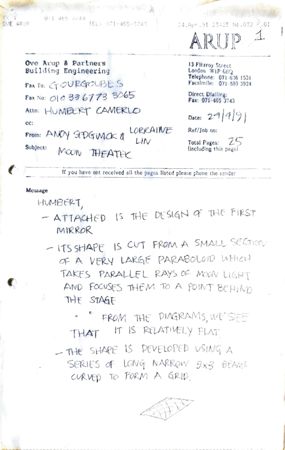 ARUP 1
Ove Arup & Partners
Building Engineering
13 Fitzroy Street
London W1P 6BQ
Fax To: GOURGOUBES
Fax No: 010 336773 3065
Direct Dialling:
Attn: HUMBERT CAMERLO
Fax: 071-465 3743
cc:
Date: 24/4/91
From: ANDY SEDGWICK & LORRAINE LIN
Ref/Job no:
Subject: MOON THEATRE
Total Pages: 25
(including this page)
If you have not received all the pages listed please phone the sender
Message
HUMBERT,
- ATTACHED IS THE DESIGN OF THE FIRST
MIRROR
- ITS SHAPE IS CUT FROM A SMALL SECTION
OF A VERY LARGE PARABOLOID WHICH
TAKES PARALLEL RAYS OF MOON LIGHT
AND FOCUSES THEM TO A POINT BEHIND
THE STAGE
FROM THE DIAGRAMS, WE SEE
THAT IT IS RELATIVELY FLAT
- THE SHAPE IS DEVELOPED USING A
SERIES OF LONG NARROW 3x3 BEAMS
CURVED TO FORM A GRID.